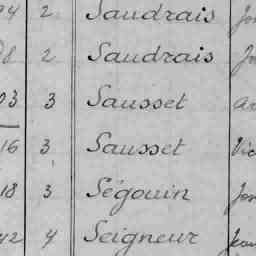 94 2 Saudrais
2 Saudrais
03 3 Sausset
16 3 Sausset Vic
18 3 Ségouin
42 4 Seigneur Jean